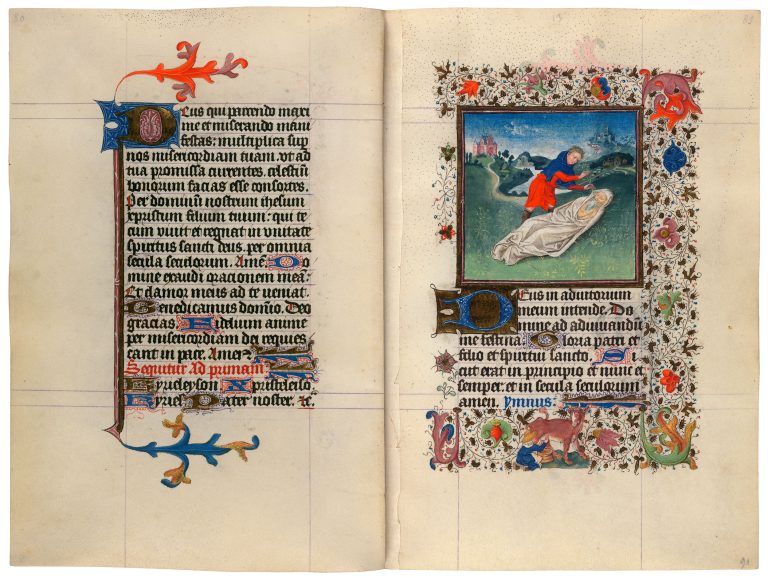 80
Deus qui parcendo maxi
me et miserando mani
festas: multiplica sup
nos misericordiam tuam. vt ad
tua promissa currentes. celestiū
bonorum facias esse consortes.
Per dominum nostrum ihesum
cristum filium tuum: qui te
cum viuit et regnat in vnitate
spiritus sancti deus. per omnia
secula seculorum. Amē. Do
mine exaudi oracionem meā:
Et clamor meus ad te ueniat.
Benedicamus domino. Deo
gracias. Fidelium anime
per misericordiam dei reques
cant in pace. Amen.
Sequitur Ad primam
Kyrieleyson Xpisteleiso
Kyriel Pater noster. &c.
81
Deus in adiutorium
meum intende. Do
mine ad adiuuandū
me festina. Gloria patri et
filio et spiritui sancto. Si
cut erat in principio et nunc et
semper. et in secula seculorum
amen. ymnus.